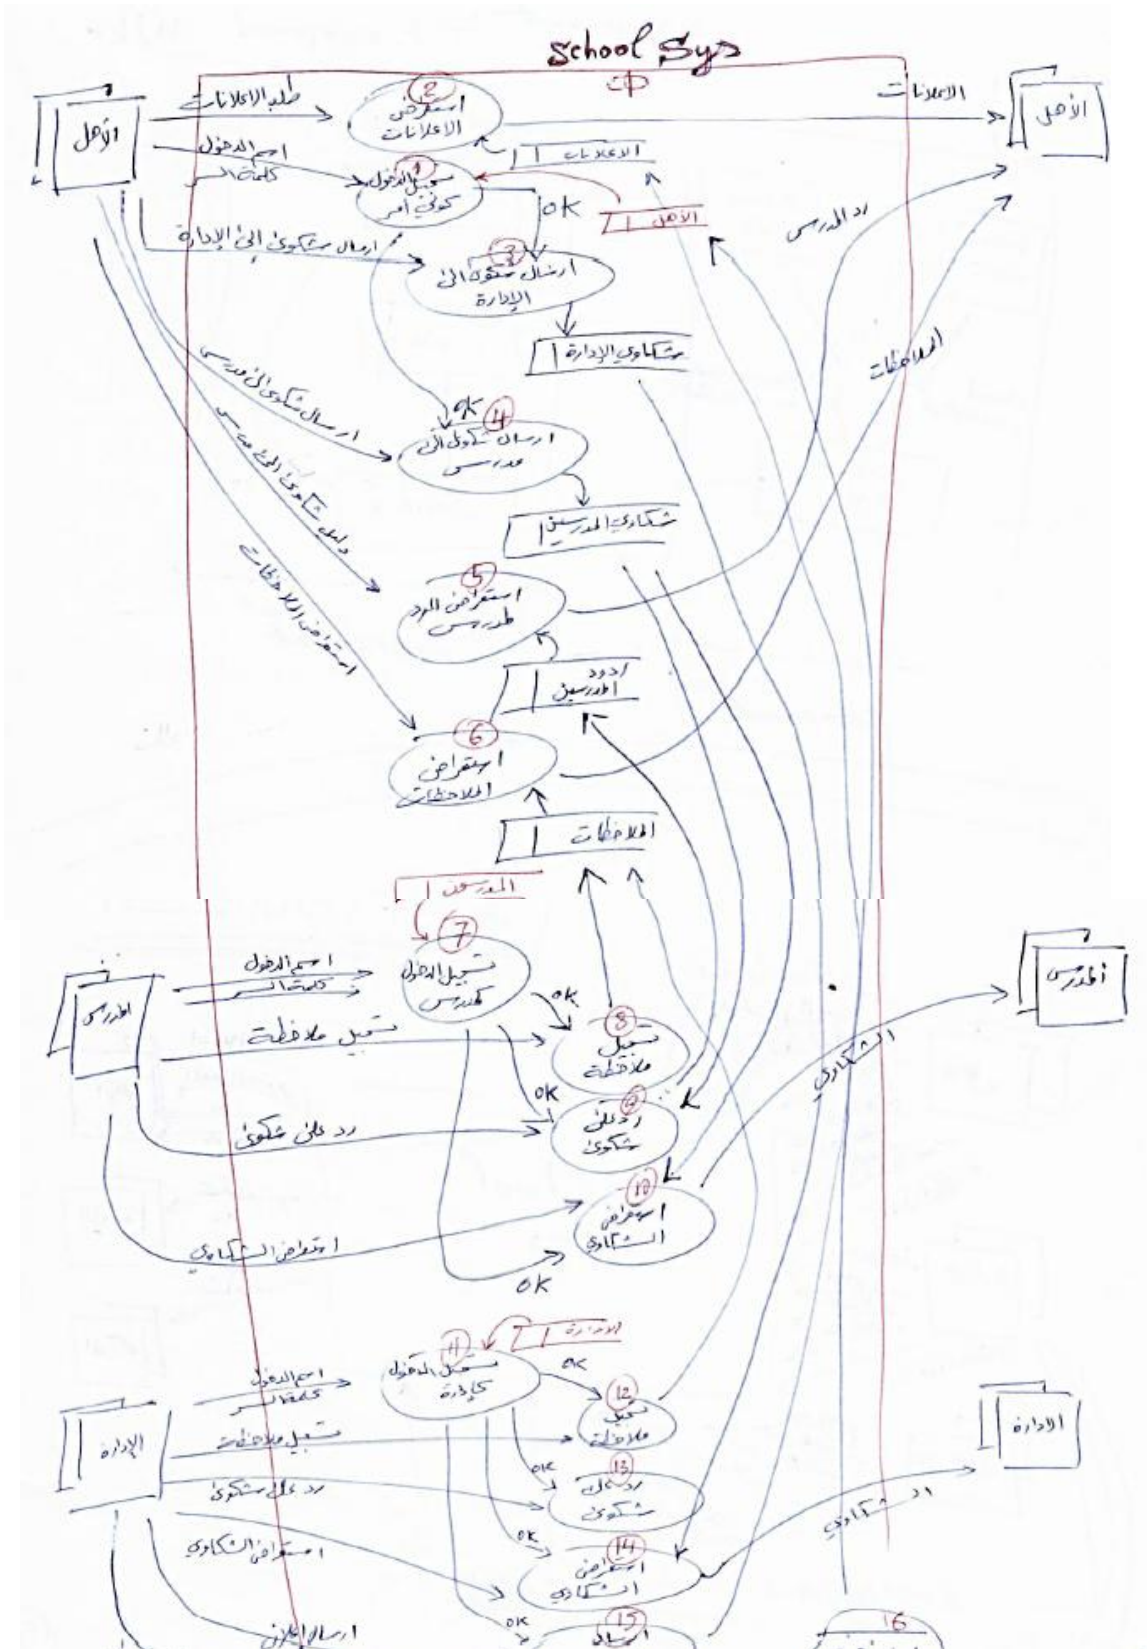 School Sys
الأهل
طلب الاعلانات
2
استعراض
الاعلانات
الاعلانات
الأهل
اسم الدخول
كلمة السر
1
تسجيل الدخول
كولي أمر
الاعلانات
OK
الأهل
ارسال شكوى إلى الإدارة
3
ارسال شكوى الى
الإدارة
رد المدرس
شكاوي الإدارة
الملاحظات
ارسال شكوى الى مدرس
OK
4
ارسال شكوى الى
مدرس
شكاوي المدرسين
5
استعراض الرد
لمدرس
استعراض الملاحظات
ردود
المدرسين
6
استعراض
الملاحظات
الملاحظات
المدرسين
7
تسجيل الدخول
كمدرس
المدرس
اسم الدخول
كلمة السر
المدرس
OK
8
تسجيل
ملاحظة
تسجيل ملاحظة
الشكاوي
OK
9
رد على
شكوى
رد على شكوى
10
استعراض
الشكاوي
استعراض الشكاوي
OK
الادارة
11
تسجيل الدخول
كإدارة
اسم الدخول
كلمة السر
OK
12
تسجيل
ملاحظة
الإدارة
تسجيل ملاحظات
الادارة
OK
13
رد على
شكوى
رد على شكوى
الشكاوي
OK
14
استعراض
الشكاوي
استعراض الشكاوي
OK
15
ارسال
ارسال اعلان
16